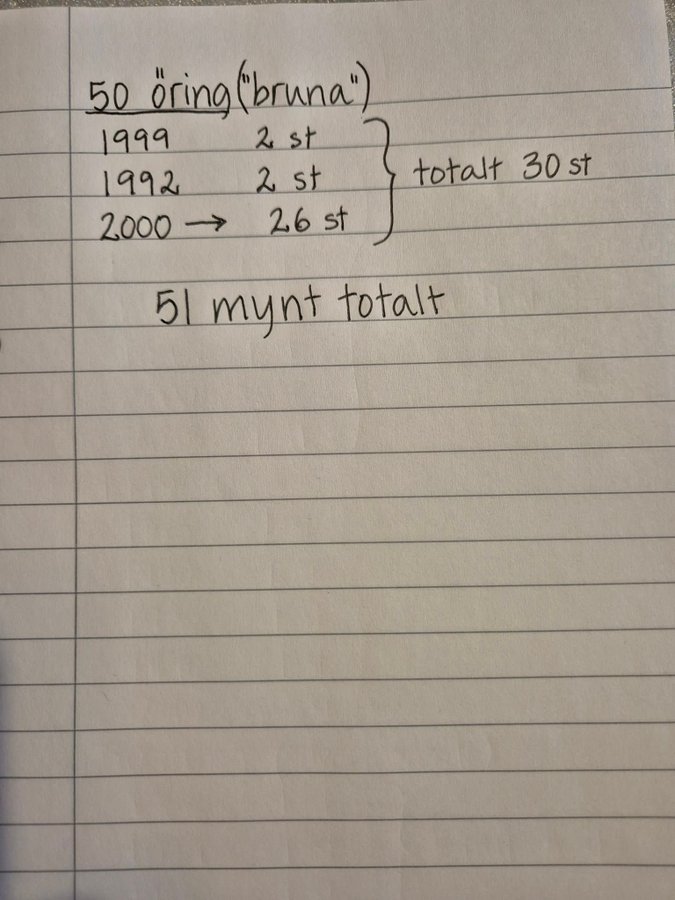 50 öring ("bruna")
1999 2 st
1992 2 st
2000 → 26 st
totalt 30 st
51 mynt totalt